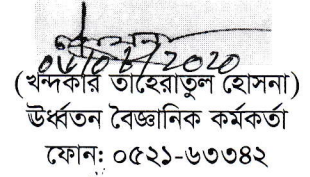 (খন্দকার তাহেরাতুল হোসনা)
ঊর্ধ্বতন বৈজ্ঞানিক কর্মকর্তা
ফোন: ০৫২১-৬৩৩৪২